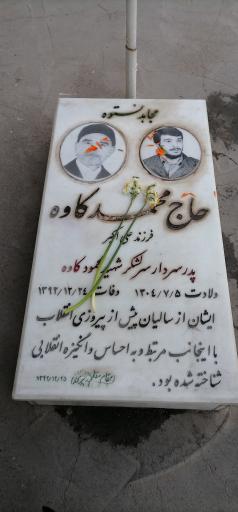 مجاهد نستوه
حاج محمد کاوه
فرزند علی اکبر
پدر سردار سرلشگر شهید محمود کاوه
ولادت ۱۳۰۴/۷/۵ وفات ۱۳۹۲/۱۲/۲۴
ایشان از سالیان پیش از پیروزی انقلاب
با اینجانب مرتبط و به احساس و انگیزه انقلابی
شناخته شده بود.
مقام معظم رهبری ۱۳۹۲/۱۲/۲۵